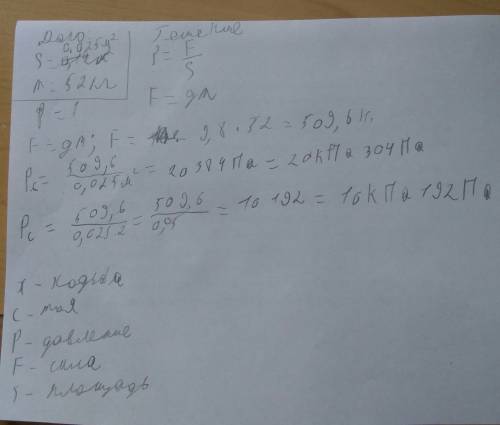 Дано Решение
S = 0,025 м² P = F/S
m = 52 кг F = gm
P = ?
F = gm; F = 9,8 · 52 = 509,6 н.
Pх = 509,6/0,025 м² = 20384 Па = 20 кПа 304 Па
Pс = 509,6/0,025·2 = 509,6/0,05 = 10 192 = 10 кПа 192 Па
х - ходьба
с - стоя
P - давление
F - сила
S - площадь